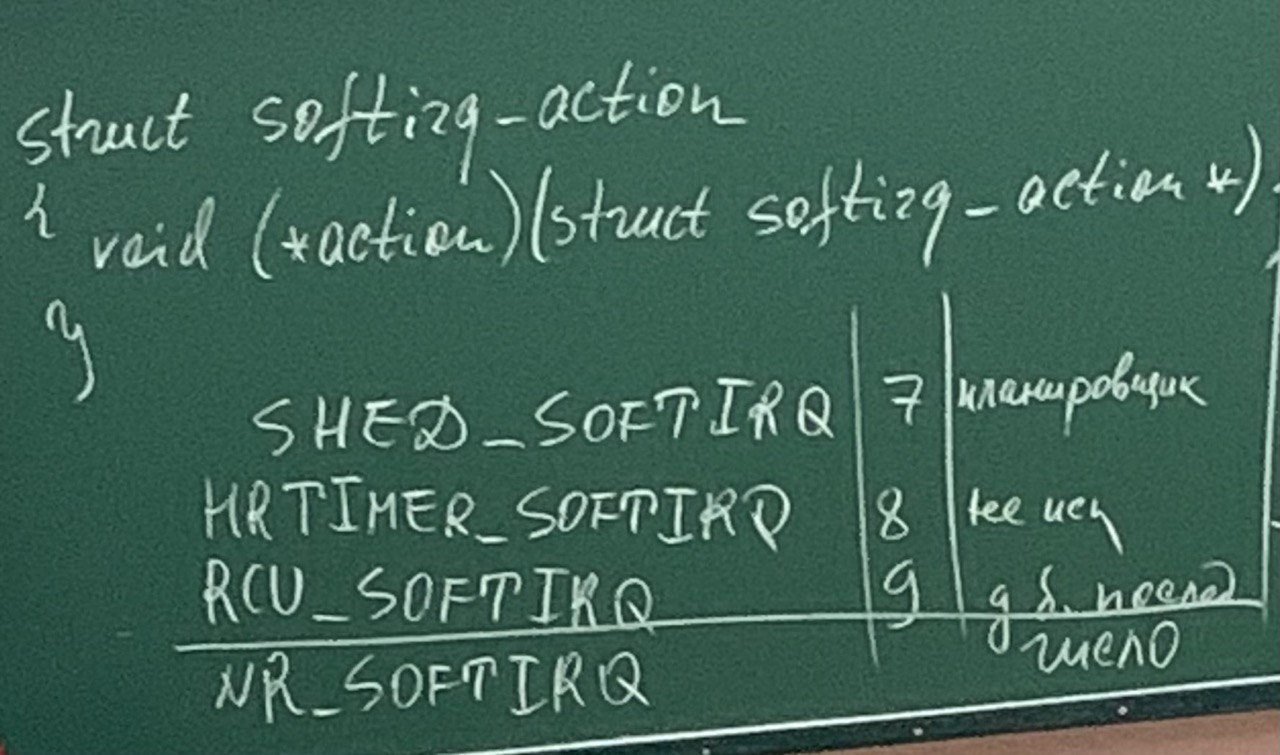 struct softirq_action
{ void (*action)(struct softirq_action *)
}
SHED_SOFTIRQ 7 планировщик
HRTIMER_SOFTIRQ 8 не исп
RCU_SOFTIRQ 9 д.б. послед
NR_SOFTIRQ число